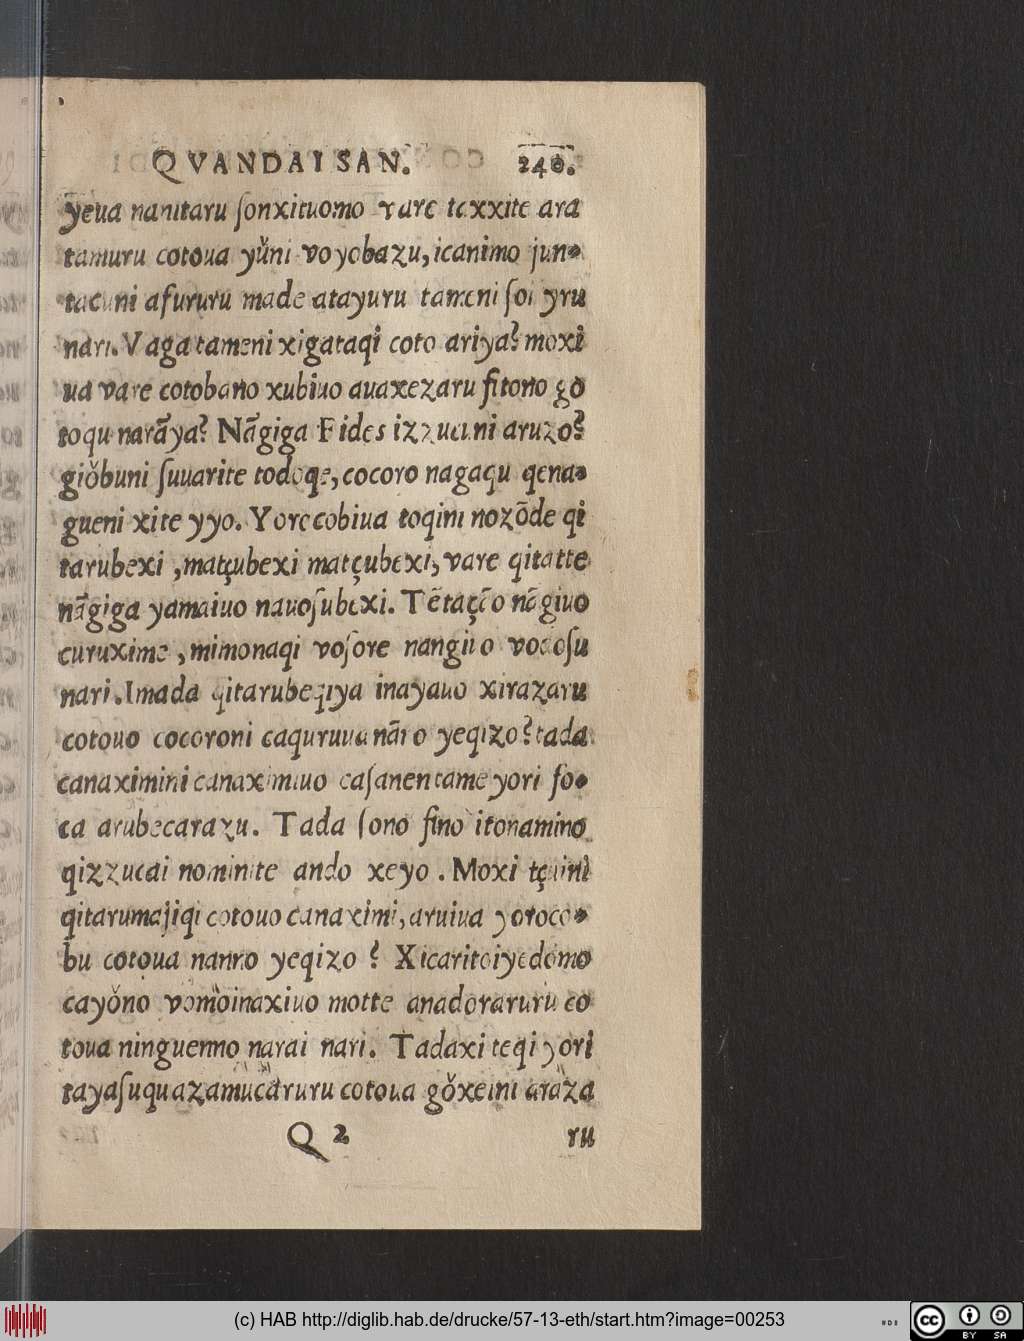 QVANDAI SAN. 240.
yeua nanitaru ſonxituomo vare texxite ara
tamuru cotoua yŭni voyobazu, icanimo jun-
tacuni afururu made atayuru tameni ſoi yru
nari. Vaga tameni xigataqi coto ariya? moxi
ua vare cotobano xubiuo auaxezaru fitono go
toqu narãya? Nãgiga Fides izzucuni aruzo?
giŏbuni ſuuarite todoqe, cocoro nagaqu qena-
gueni xite yyo. Yorocobiua toqini nozõde qi
tarubexi, matçubexi matçubexi, vare qitatte
nãgiga yamaiuo nauoſubexi. Tẽtaçõ nãgiuo
curuxime, mimonaqi voſore nangiuo vocoſu
nari. Imada qitarubeqiya inayauo xirazaru
cotouo cocoroni caquruua nãno yeqizo? tada
canaximini canaximiuo caſanen tame yori fo-
ca arubecarazu. Tada ſono fino itonamino
qizzucai nominite ando xeyo. Moxi tçuini
qitarumajiqi cotouo canaximi, aruiua yoroco-
bu cotoua nanno yeqizo? Xicaritoiyedomo
cayŏno vomoinaxiuo motte anadoraruru co
toua ninguenno narai nari. Tadaxi teqi yori
tayaſuqu azamucaruru cotoua gŏxeini araza
Q 2 ru
(c) HAB http://diglib.hab.de/drucke/57-13-eth/start.htm?image=00253
cc BY SA